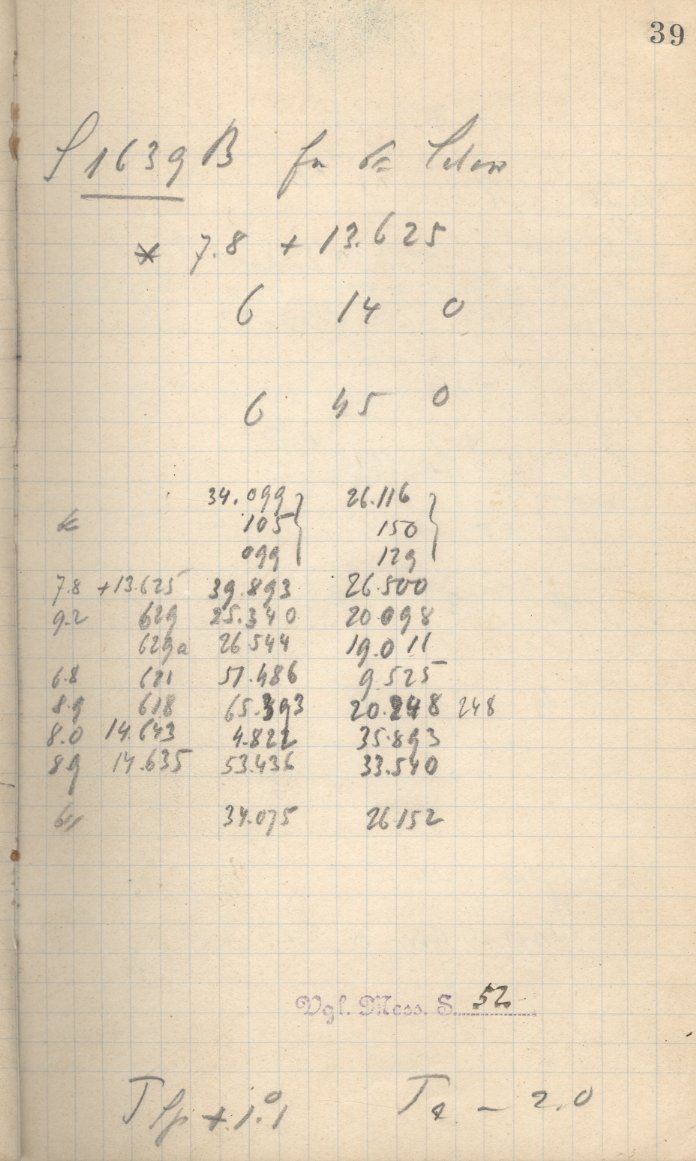 39
1639 B
* 7.8 + 13.625
6 14 0
6 45 0
34.099 } 26.116 }
105 150
099 129
7.8 +13.625 39.893 26.500
9.2 629 25.340 20.098
629a 26.544 19.011
6.8 621 51.486 9.525
8.9 618 65.393 20.248 248
8.0 14.643 4.822 35.893
8.9 14.635 53.436 33.540
34.075 26.152
Vgl. Mess. S. 52
T Sp + 1.°1 T a - 2.0